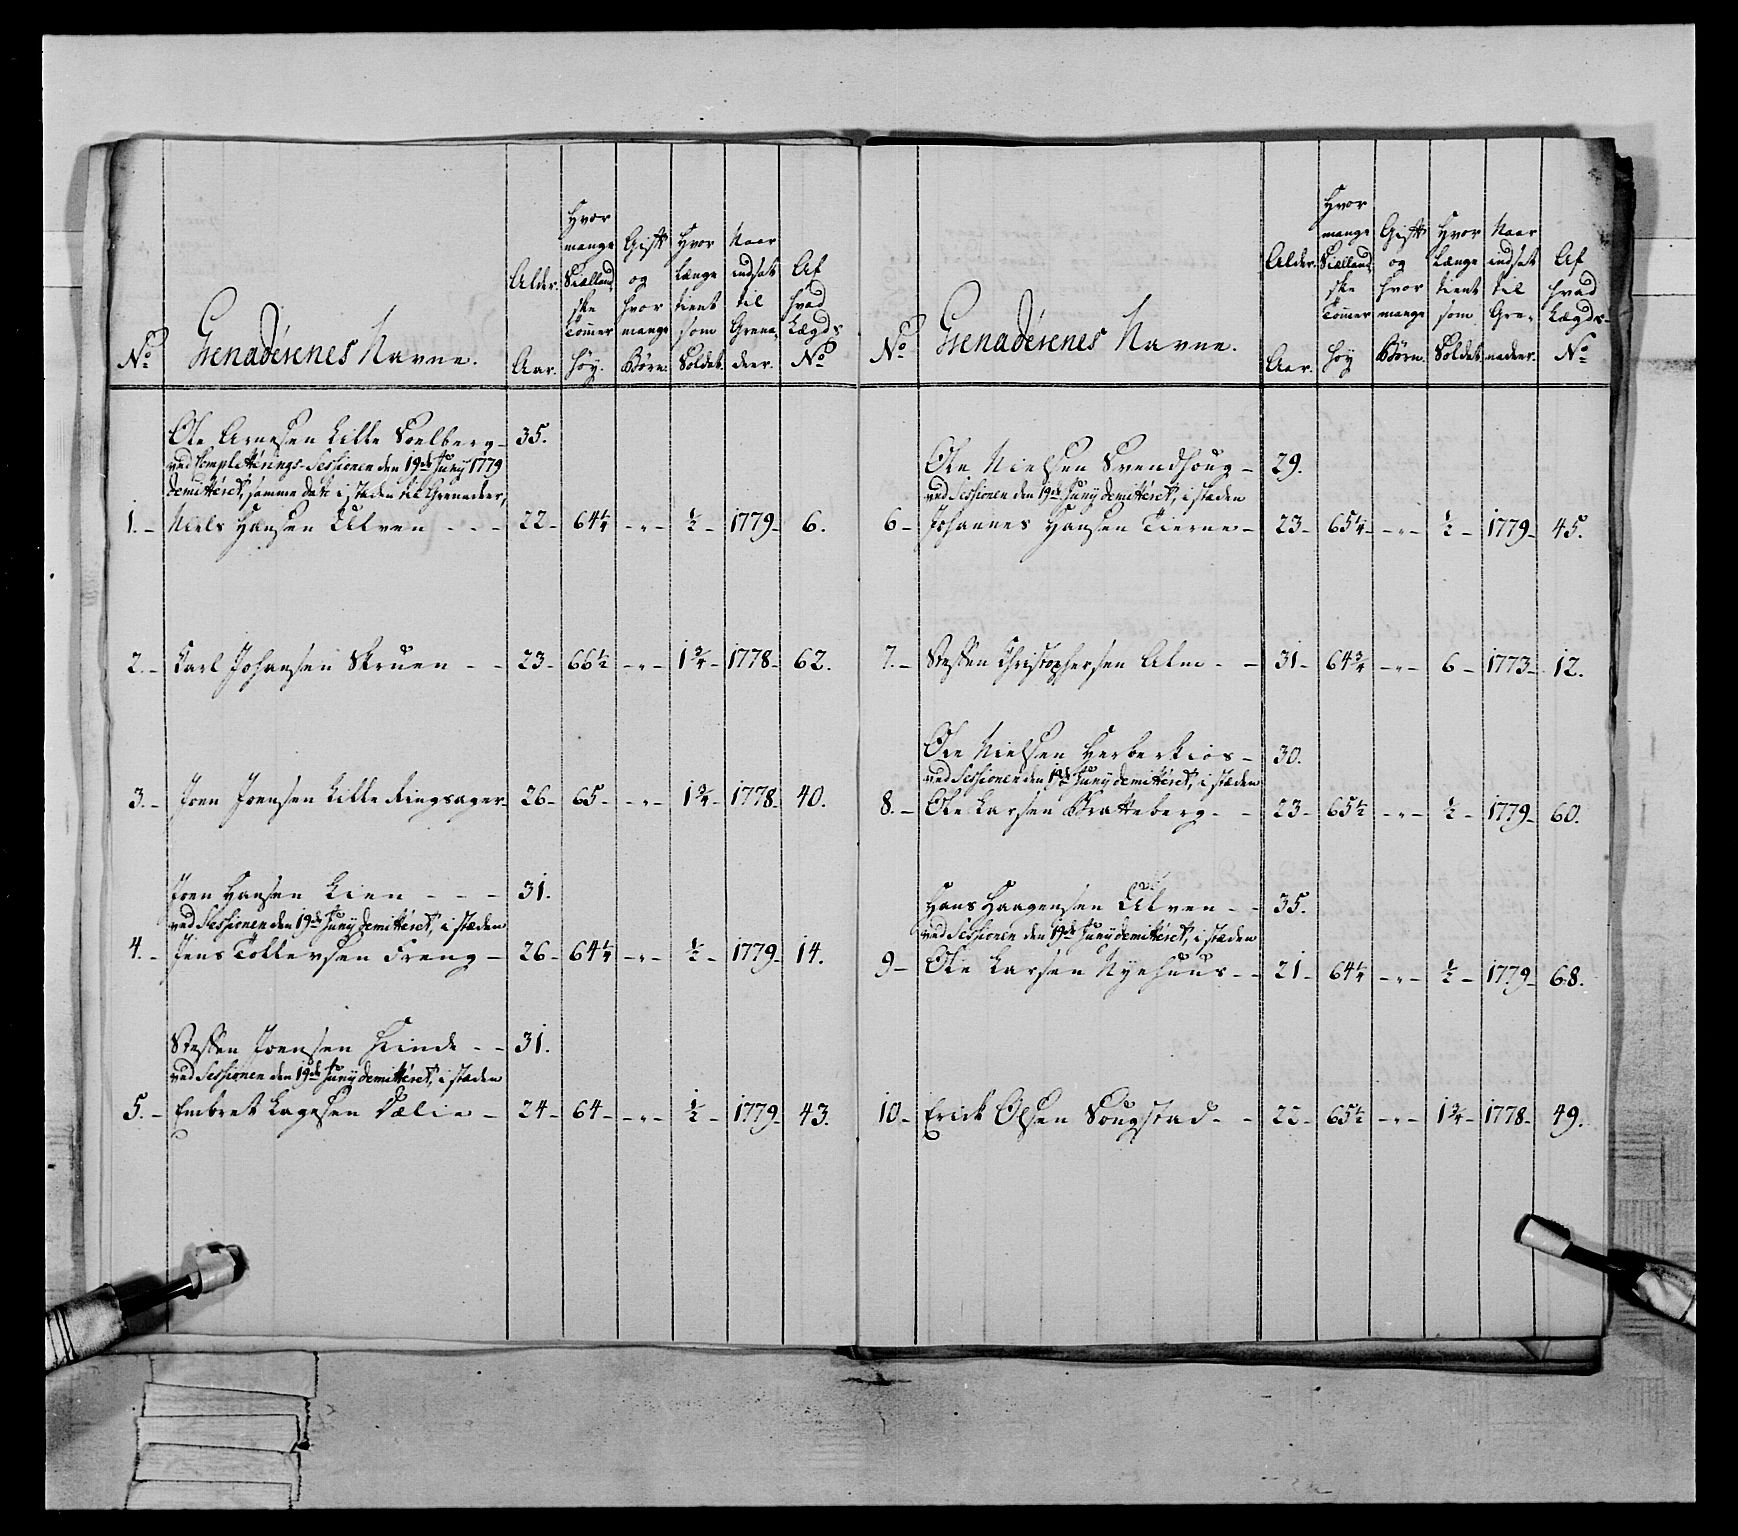 No. Grenadérenes Navne. Alder. Aar. Hvor mange Siællandske Tommer høy. Gift og hvor mange Børn. Hvor længe tient som Soldat. Naar indsat til Grenadeer. Af hvad Lægds No.
Ole Arnesen Lille Soelberg - 35.
ved Completterings-Sessionen den 19de Juny 1779
demitteret, samme dato i stæden til Grenadeer,
1. - Niels Hansen Ulven - - - 22 - 64 1/4 - " - 1/2 - 1779 - 6.
2. - Carl Johansen Skruen - - 23 - 66 1/2 - " - 1 3/4 - 1778 - 62.
3. - Joen Joensen Lille Ringsager - 26 - 65 - " - 1 3/4 - 1778 - 40.
Joen Hansen Lien - - - 31.
ved Sessionen den 19de Juny demitteret, i stæden
4. - Jens Tollevsen Freng - 26 - 64 1/4 - " - 1/2 - 1779 - 14.
Steffen Joensen Hinde - - 31.
ved Sessionen den 19de Juny demitteret, i stæden
5. - Embret Lagesen Dælie - 24 - 64 - " - 1/2 - 1779 - 43.
No. Grenadérenes Navne. Alder. Aar. Hvor mange Siællandske Tommer høy Gift og hvor mange Børn. Hvor længe tient som Soldat. Naar indsat til Grenadeer. Af hvad Lægds No.
Ole Nielsen Svendhoug - 29.
ved Sessionen den 19de Juny demitteret, i stæden
6 - Johannes Hansen Tierne - 23 - 65 1/4 - " - 1/2 - 1779 - 45.
7. - Steffen Christophersen Alm - - 31 - 64 3/4 - " - 6 - 1773 - 12.
Ole Nielsen Herberkios - 30.
ved Sessionen den 19de Juny demitteret, i stæden
8. - Ole Larsen Bratteberg - - 23 - 65 1/2 - " - 1/2 - 1779 - 60.
Hans Haagensen Ulven - - 35.
ved Sessionen den 19de Juny demitteret, i stæden
9 - Ole Larsen Nyehuus - - 21 - 64 1/4 - " - 1/2 - 1779 - 68.
10 - Erick Olsen Sougstad - - 65 1/2 - " - 1 3/4 - 1778 - 49.